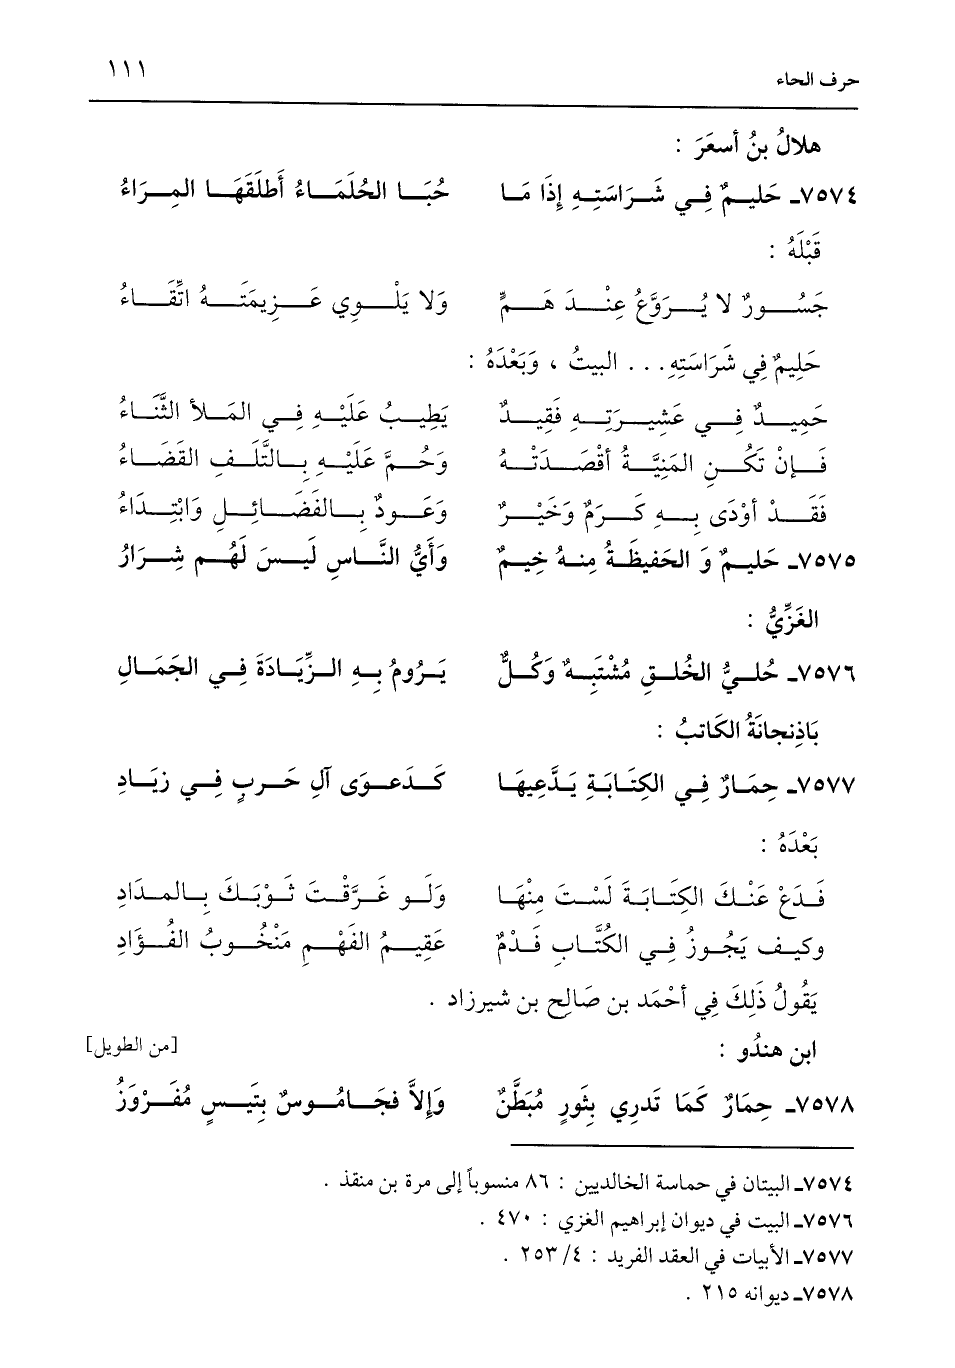 حرف الحاء ١١١
هلالُ بنُ أسعَرَ :
٧٥٧٤ـ حَليمٌ فِي شَرَاسَتِهِ إِذَا مَا حُبَا الحُلَمَاءُ أَطلَقَهَا المِرَاءُ
قَبْلَهُ :
جَسُورٌ لا يُرَوَّعُ عِنْدَ هَمٍّ وَلا يَلْوِي عَزِيمَتَهُ اتِّقَاءُ
حَلِيمٌ فِي شَرَاسَتِهِ . . . البيتُ ، وَبَعْدَهُ :
حَمِيدٌ فِي عَشِيرَتِهِ فَقِيدٌ يَطِيبُ عَلَيْهِ فِي المَلأ الثَّنَاءُ
فَإنْ تَكُنِ المَنِيَّةُ أقْصَدَتْهُ وَحُمَّ عَلَيْهِ بِالتَّلَفِ القَضَاءُ
فَقَدْ أوْدَى بِهِ كَرَمٌ وَخَيْرٌ وَعَودٌ بِالفَضَائِلِ وَابْتِدَاءُ
٧٥٧٥ـ حَليمٌ وَ الحَفيظَةُ مِنهُ خِيمٌ وَأَيُّ النَّاسِ لَيسَ لَهُم شِرَارُ
الغَزِّيُّ :
٧٥٧٦ـ حُليُّ الخُلقِ مُشْتَبِهٌ وَكُلٌّ يَرُومُ بِهِ الزِّيَادَةَ فِي الجَمَالِ
بَاذِنجانَةُ الكَاتبُ :
٧٥٧٧ـ حِمَارٌ فِي الكِتَابَةِ يَدَّعِيهَا كَدَعوَى آلِ حَربٍ فِي زيَادِ
بَعْدَهُ :
فَدَعْ عَنْكَ الكِتَابَةَ لَسْتَ مِنْهَا وَلَو غَرَّقْتَ ثَوْبَكَ بِالمدَادِ
وكيف يَجُوزُ فِي الكُتَّابِ فَدْمٌ عَقِيمُ الفَهْمِ مَنْخُوبُ الفُؤَادِ
يَقُولُ ذَلِكَ فِي أحْمَد بن صَالِح بن شيرزاد .
ابن هندُو : [من الطويل]
٧٥٧٨ـ حِمَارٌ كَمَا تَدرِي بِثَورٍ مُبَطَّنٌ وَإلاَّ فجَامُوسٌ بِتَيسٍ مُفَروَزُ
٧٥٧٤ـ البيتان في حماسة الخالديين : ٨٦ منسوباً إلى مرة بن منقذ .
٧٥٧٦ـ البيت في ديوان إبراهيم الغزي : ٤٧٠ .
٧٥٧٧ـ الأبيات في العقد الفريد : ٤/ ٢٥٣ .
٧٥٧٨ـ ديوانه ٢١٥ .